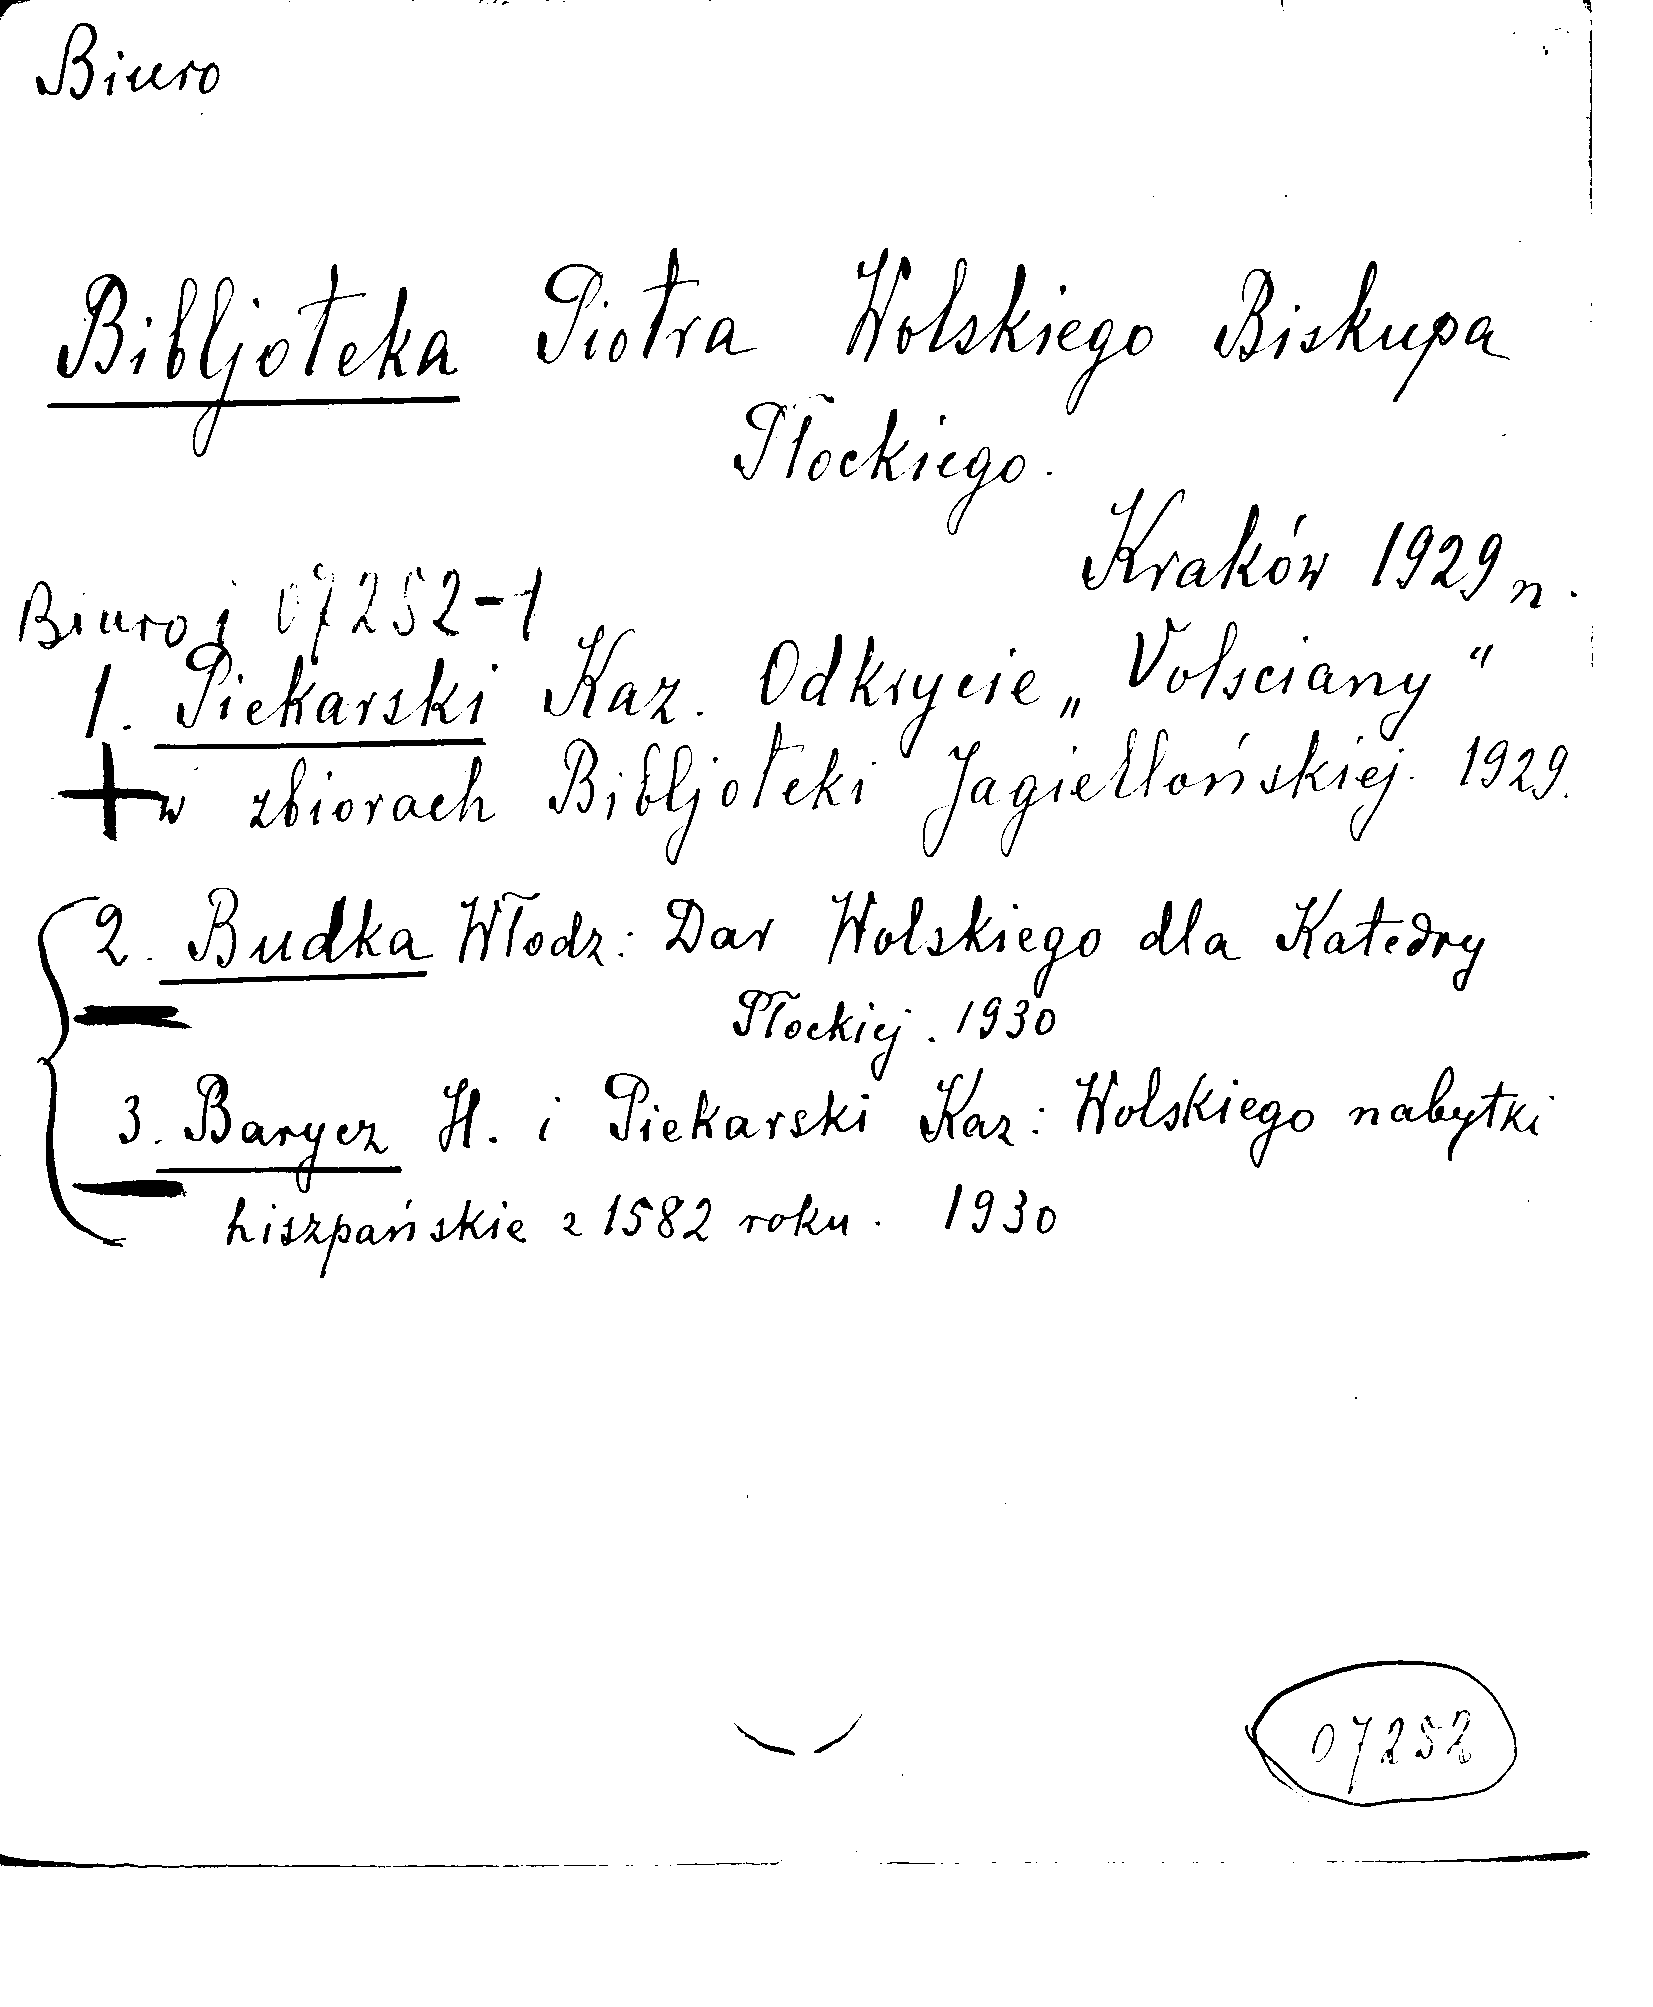 Biuro
Bibljoteka Piotra Wolskiego Biskupa
Płockiego.
Kraków 1929 n.
Biuro j 07252-1
1. Piekarski Kaz. Odkrycie „Volsciany"
+ w zbiorach Bibljoteki Jagiellońskiej. 1929.
2. Budka Włodz: Dar Wolskiego dla Katedry
Płockiej. 1930
3. Barycz H. i Piekarski Kaz: Wolskiego nabytki
hiszpańskie z 1582 roku. 1930
07252